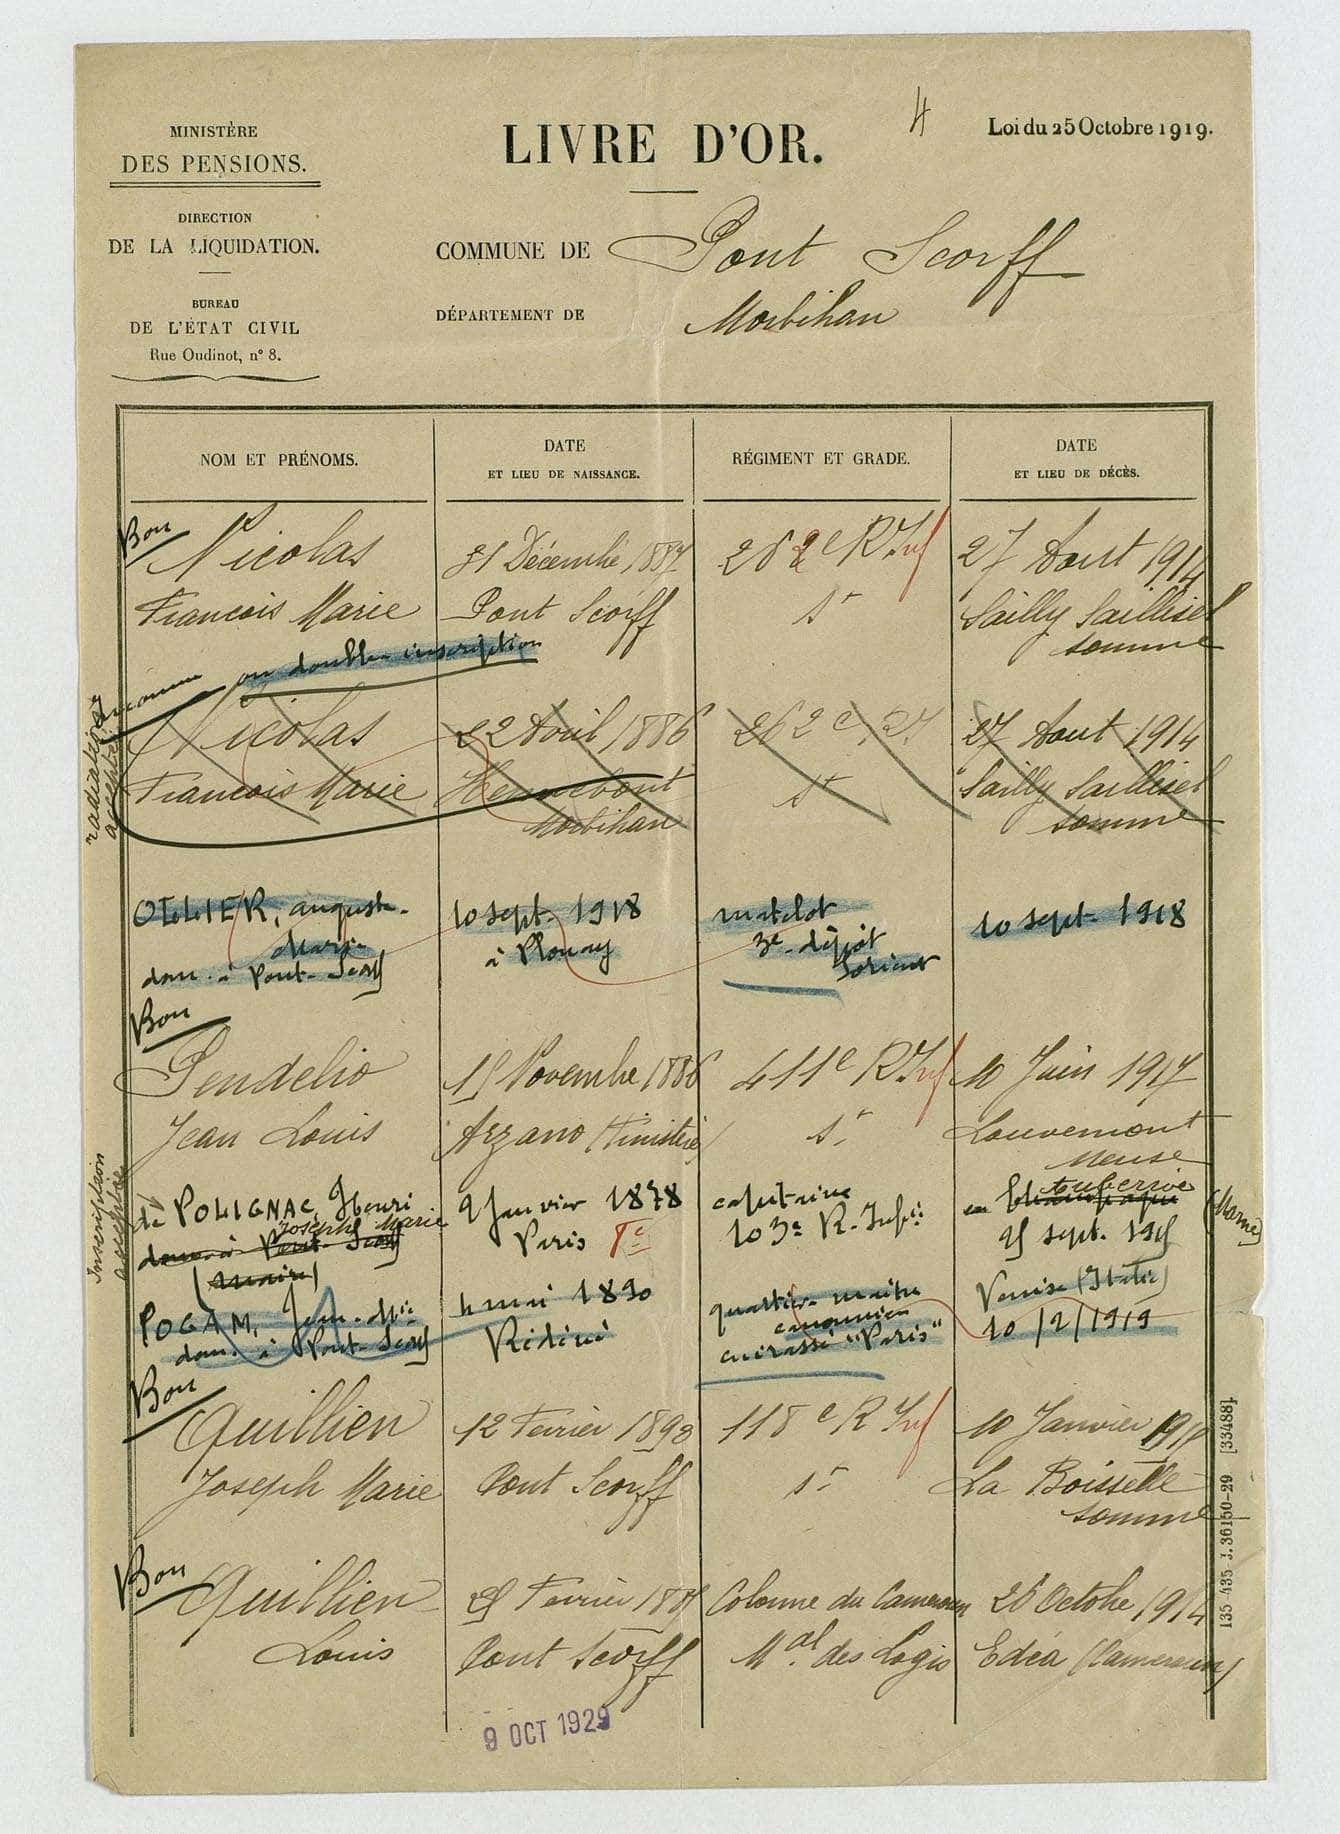 4
Loi du 25 Octobre 1919.
MINISTÈRE
DES PENSIONS.
DIRECTION
DE LA LIQUIDATION.
BUREAU
DE L'ÉTAT CIVIL
Rue Oudinot, n° 8.
LIVRE D'OR.
COMMUNE DE Pont Scorff
DÉPARTEMENT DE Morbihan
NOM ET PRÉNOMS.
DATE
ET LIEU DE NAISSANCE.
RÉGIMENT ET GRADE.
DATE
ET LIEU DE DÉCÈS.
Bon
Nicolas
François Marie
31 Décembre 1887
Pont Scorff
262e R. Inf
St
27 Aout 1914
Sailly Saillisel
Somme
inconnu ou double inscription
radiation
acceptée
Nicolas
François Marie
22 Avril 1886
Hennebont
Morbihan
262e R.I.
St
27 Aout 1914
Sailly Saillisel
Somme
OLLIER, auguste-
Marie
dom. à Pont-Scorff
10 sept. 1918
à Plouay
matelot
3e dépôt
Lorient
10 sept. 1918
Bon
Pendelio
Jean Louis
15 Novembre 1886
Arzano (Finistère)
411e R. Inf
St
10 Juin 1917
Louvemont
Meuse
Inscription
acceptée
de POLIGNAC, Henri
Joseph Marie
dom. à Pont-Scorff
(maire)
9 Janvier 1878
Paris
capitaine
103e R. Infie
en Champagne
Auberive
(Marne)
25 sept. 1915
POGAM, Jean-Mie
dom. à Pont-Scorff
4 mai 1890
Rédéné
quartier-maître
canonnier
cuirassé "Paris"
Venise (Italie)
10/2/1919
Bon
Quillien
Joseph Marie
12 Fevrier 1893
Pont Scorff
118e R Inf
St
10 Janvier
La Boisselle
Somme
Bon
Quillien
Louis
Fevrier
Pont Scorff
Colonne du Cameroun
Mal. des Logis
26 Octobre 1914
Edéa (Cameroun)
9 OCT 1929
135-435-J.36150-29 [33488].